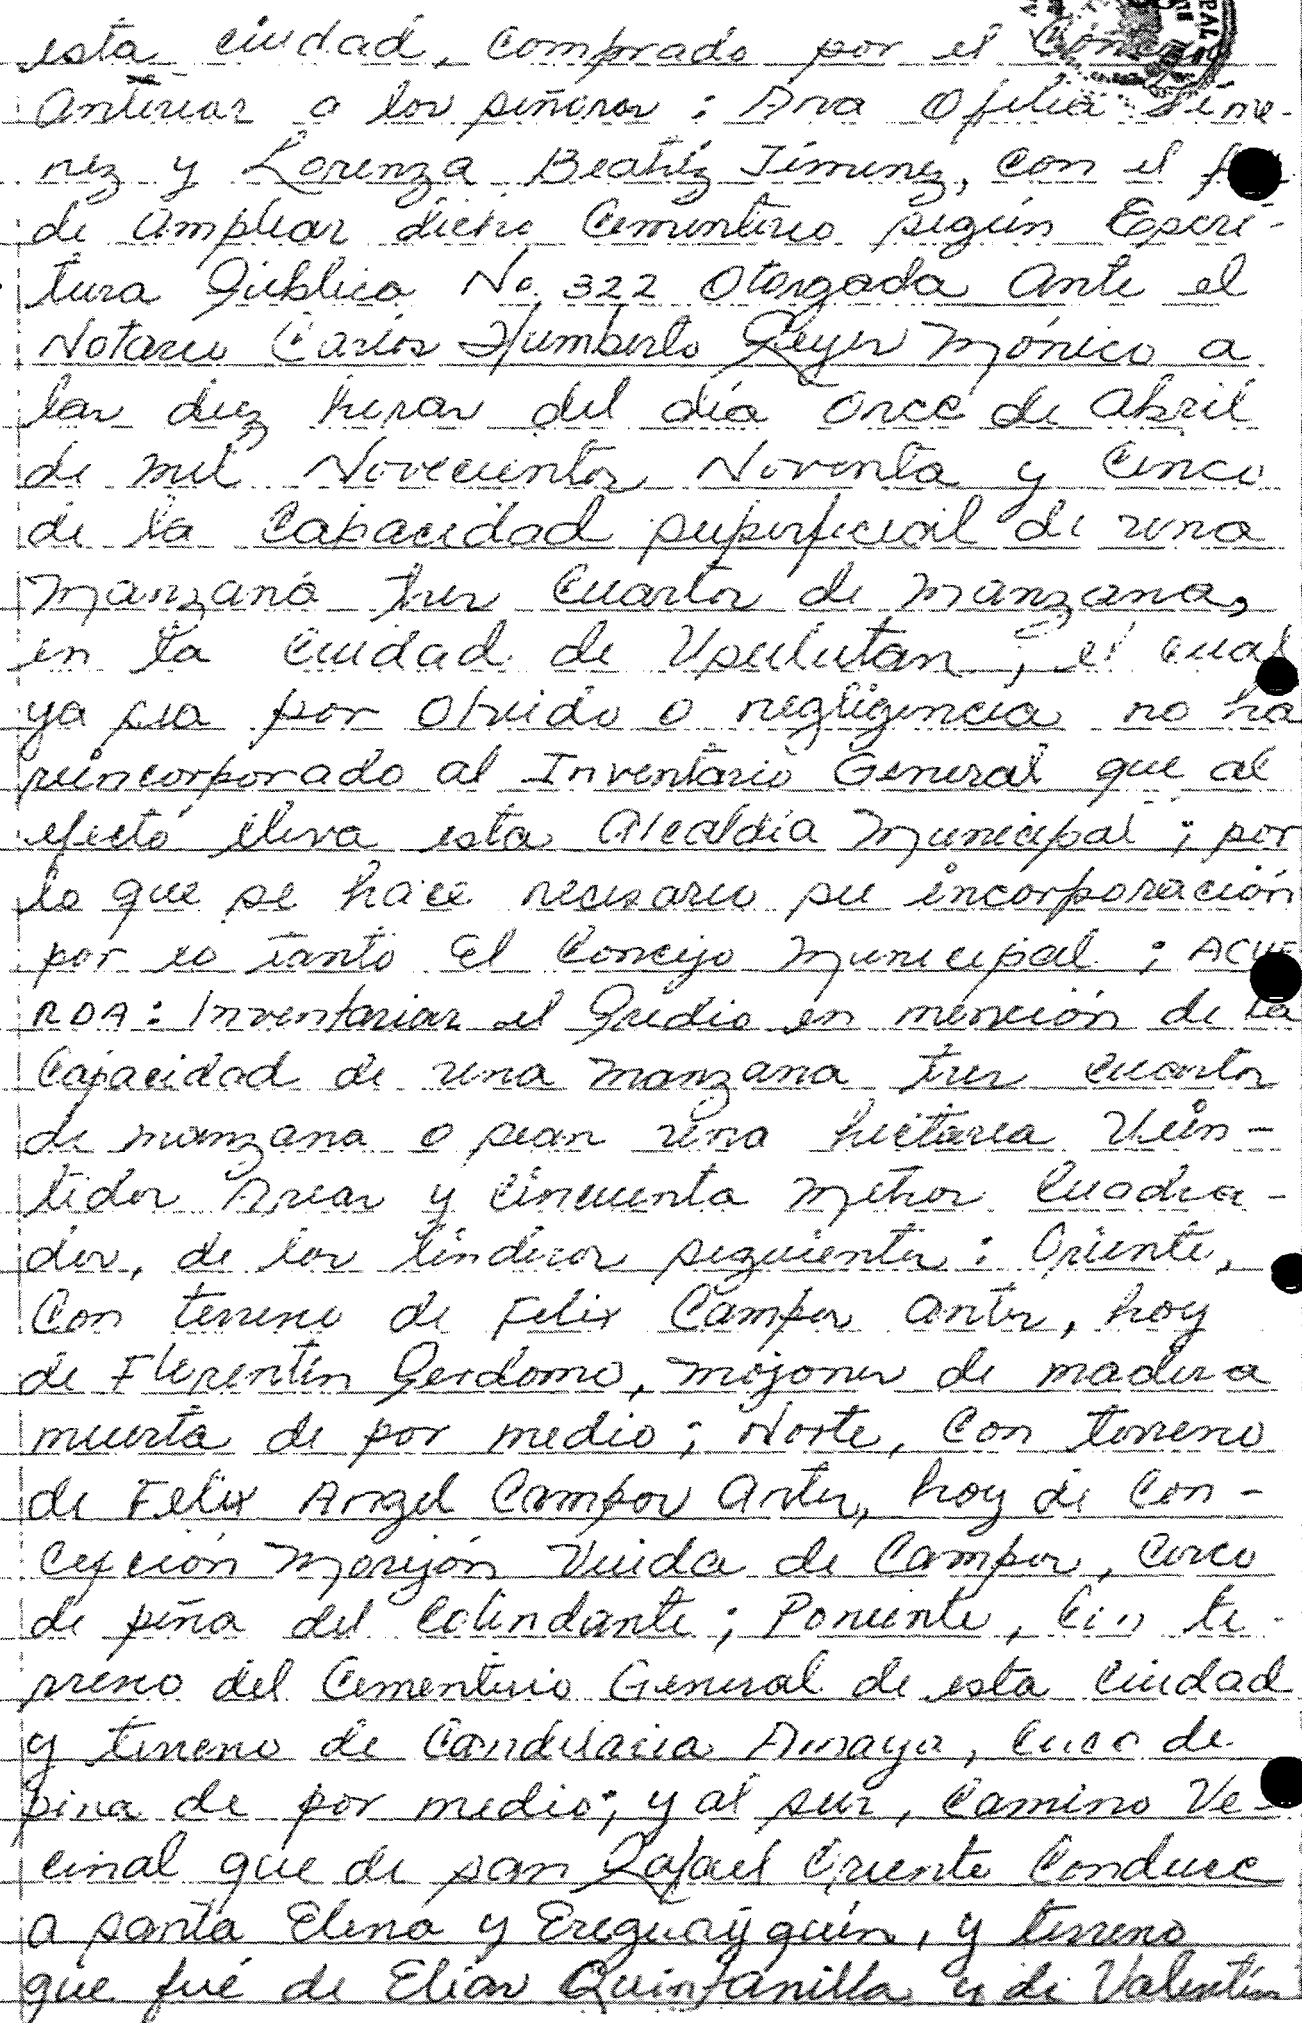 esta ciudad, Comprado por el Concejo
Anterior a los señores: Ana Ofelia Jime-
nez y Lorenza Beatríz Jimenez, con el
de Ampliar dicho Cementerio según Escri-
tura Pública No. 322 Otorgada Ante el
Notario Carlos Humberto Reyes Mónico a
las diez horas del día Once de Abril
de mil Novecientos Noventa y Cinco
de la Capacidad superficial de una
Manzana tres Cuartos de Manzana,
en la Ciudad de Usulutan, el cual
ya sea por Olvido o negligencia no ha
reincorporado al Inventario General que al
efecto lleva esta Alcaldía Municipal; por
lo que se hace necesario su incorporación
por lo tanto El Concejo Municipal; ACUE
RDA: Inventariar el Predio en mención de la
Capacidad de una manzana tres cuartos
de manzana o sean una hectarea Vein-
tidos Areas y Cincuenta Metros Cuadra-
dos, de los linderos siguientes: Oriente,
Con terreno de Felix Campos antes, hoy
de Florentín Perdomo, mojones de madera
muerta de por medio; Norte, Con terreno
de Felix Angel Campos Antes, hoy de Con-
cepción Monjón Viuda de Campos, cerco
de piña del Colindante; Poniente, Con te-
rreno del Cementerio General de esta Ciudad
y terreno de Candelaria Amaya, Cerco de
pina de por medio; y al sur, Camino Ve-
cinal que de san Rafael Oriente Conduce
a santa Elena y Ereguayquín, y terreno
que fué de Elías Quintanilla y de Valentín